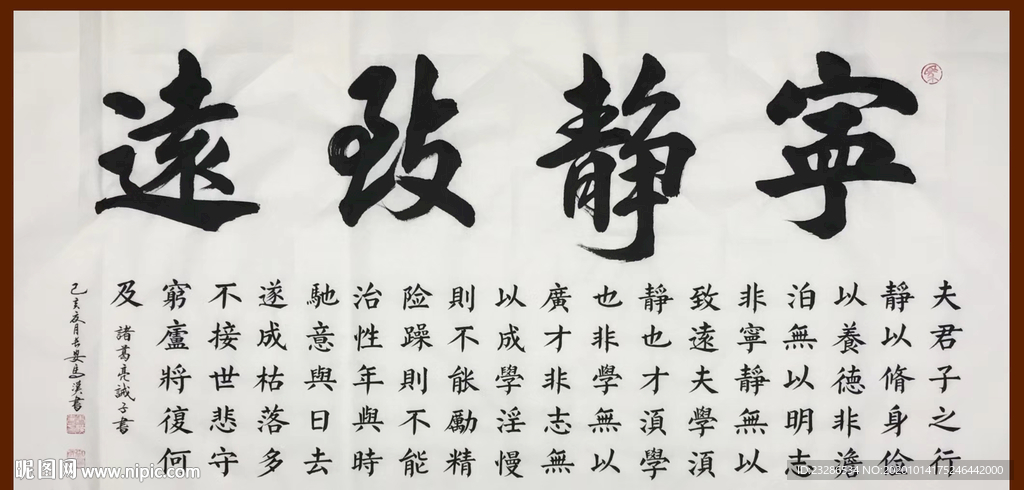 寧靜致遠
夫君子之行
靜以脩身儉
以養德非澹
泊無以明志
非寧靜無以
致遠夫學湏
靜也才湏學
也非學無以
廣才非志無
以成學淫慢
則不能勵精
险躁則不能
治性年與時
馳意與日去
遂成枯落多
不接世悲守
窮廬將復何
及 諸葛亮誡子書
己亥
昵图网 www.nipic.com
ID:23286534 NO:20201014175246442000